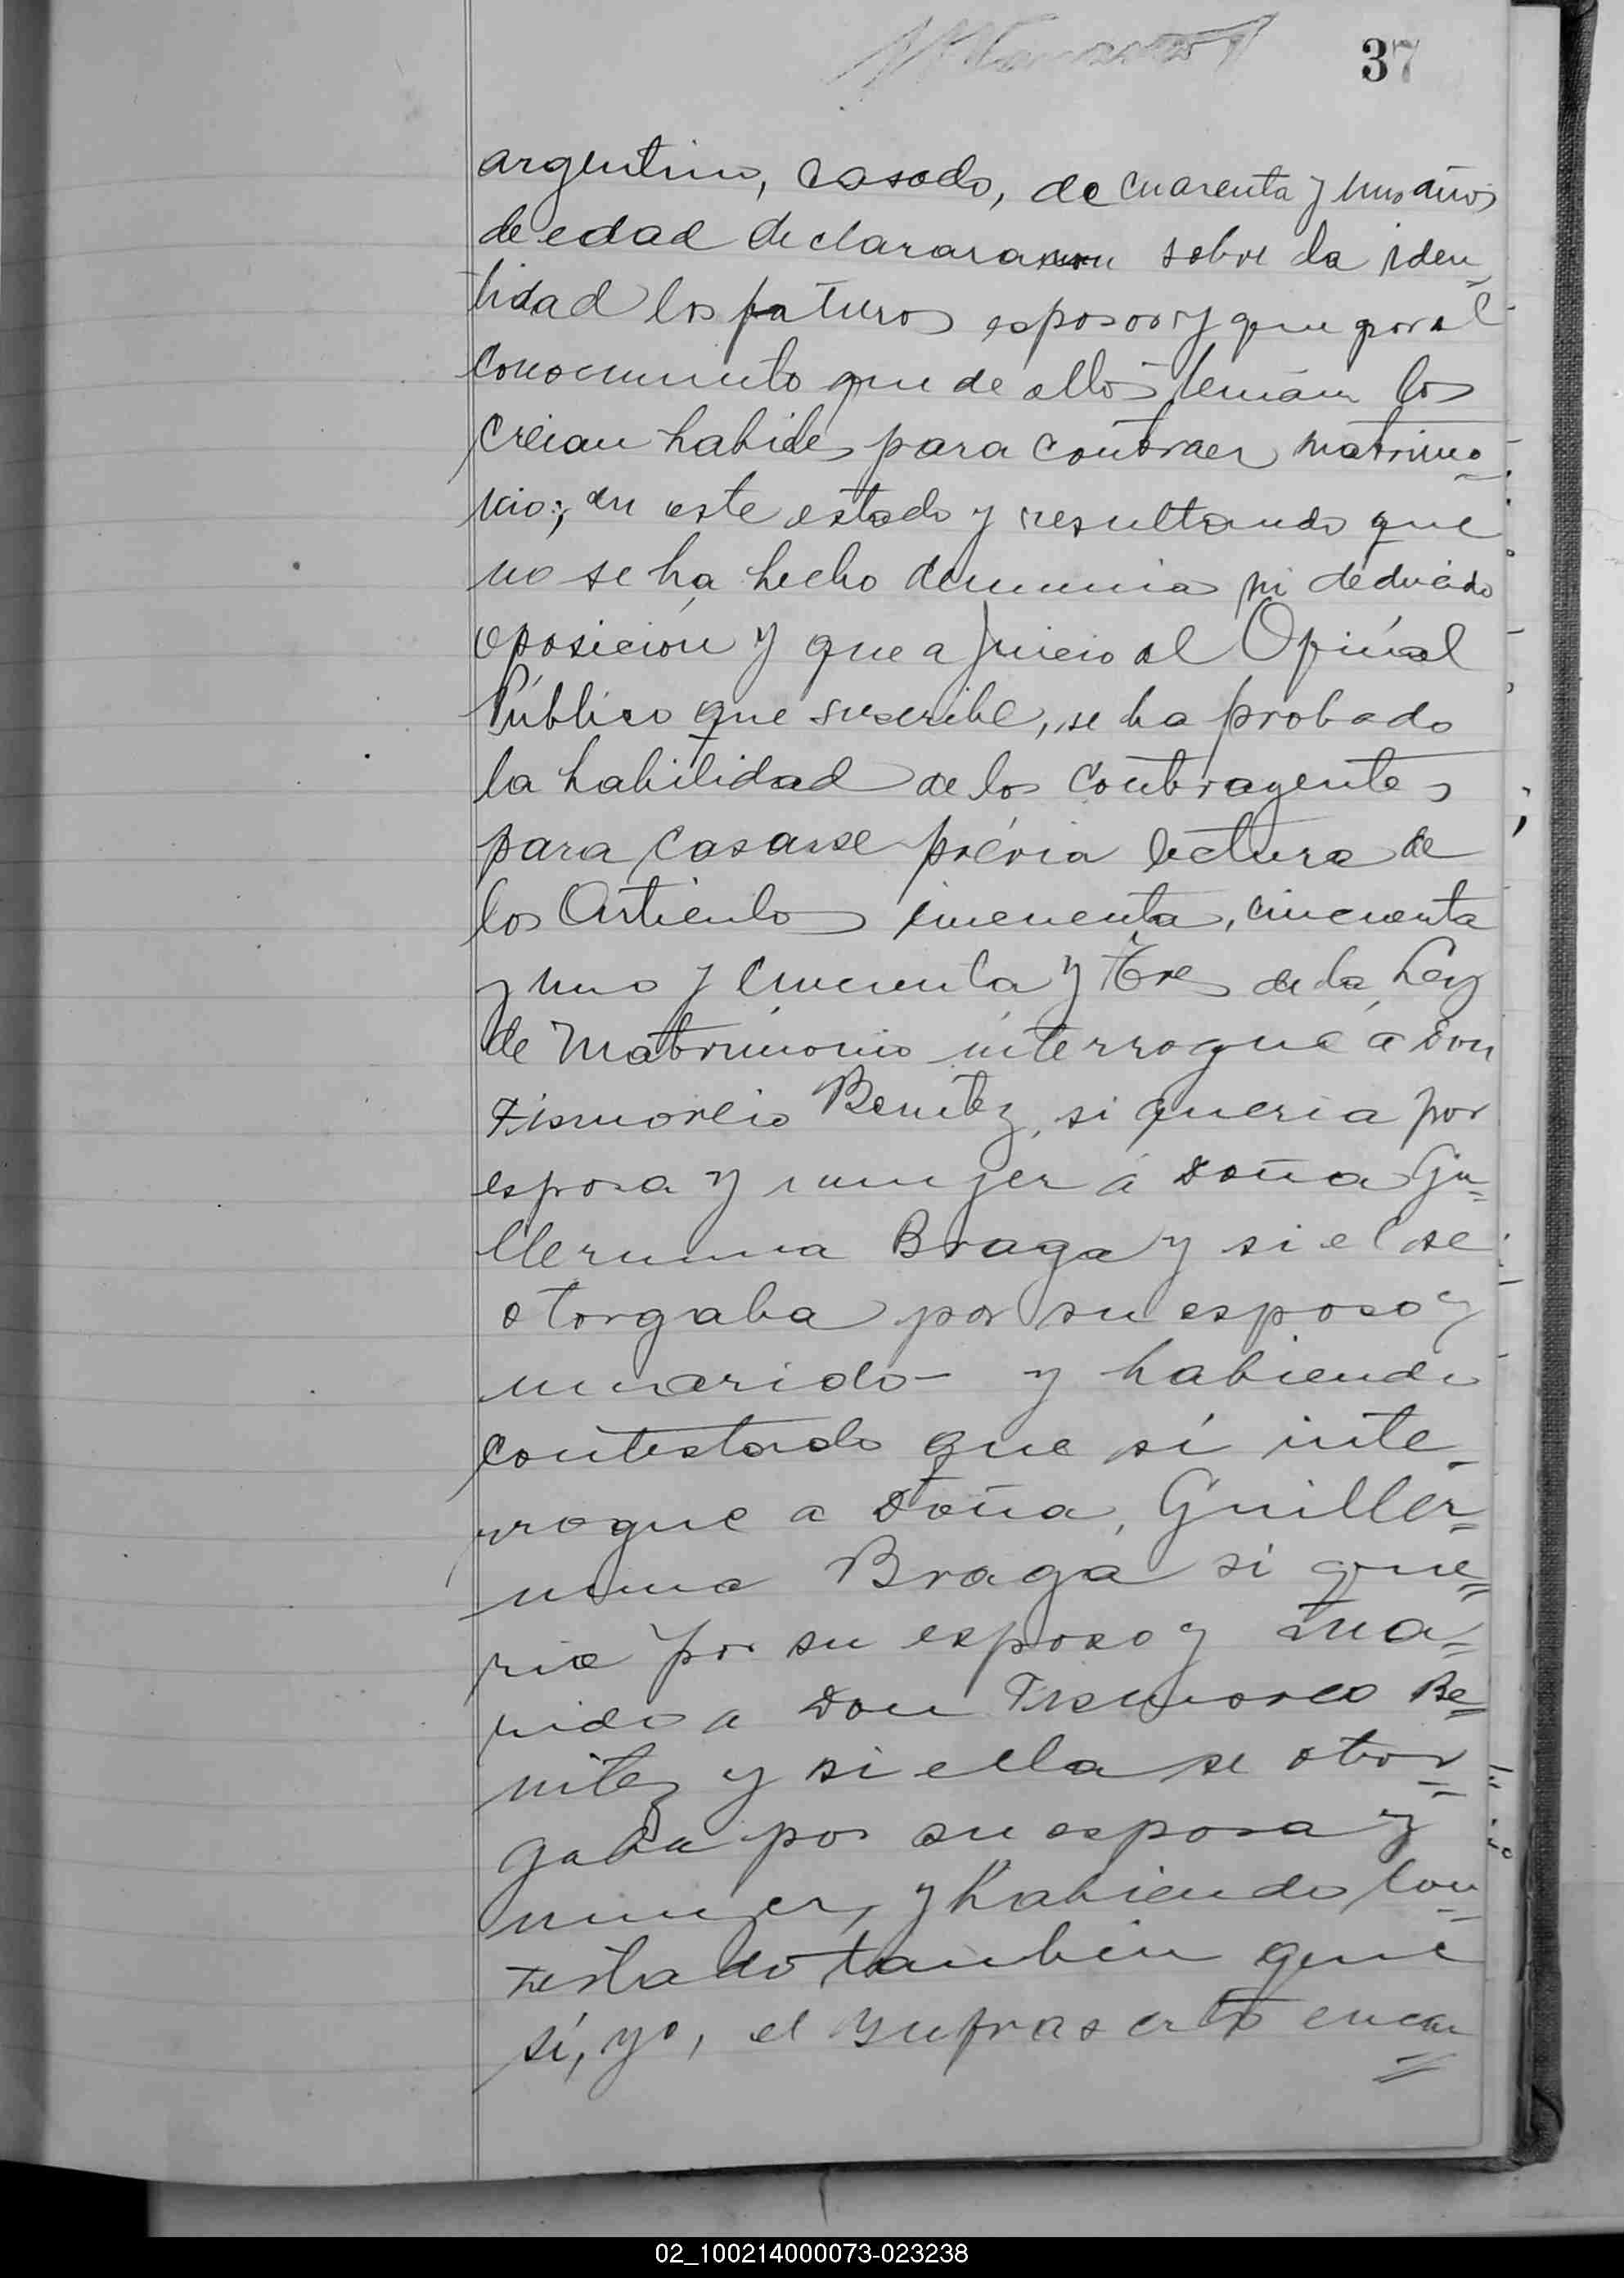 37
argentino, casado, de cuarenta y un años
de edad declararon sobre la iden
tidad los futuros esposos y que por el
conocimiento que de ellos tenian los
creian habiles para contraer matrimo-
nio; en este estado y resultando que
no se ha hecho denuncia ni deducido
oposición y que a juicio al Oficial
Público que suscribe, se ha probado
la habilidad de los contrayentes
para casarse prévia lectura de
los Artículos cincuenta, cincuenta
y uno y cincuenta y tres de la Ley
de Matrimonio interrogué á Don
Benitez, si queria por
esposa y mujer á Doña Gui=
llermina Braga y si el se
otorgaba por su esposo y
marido- y habiendo
contestado que sí inte-
rrogue a Doña, Guiller=
mina Braga si que=
ria por su esposo y ma=
rido a Don Be=
nitez y si ella se otor=
gaba por su esposa y
mujer, y habiendo con=
testado tambien que
sí, yo, el Infrascrito encar=
02_100214000073-023238